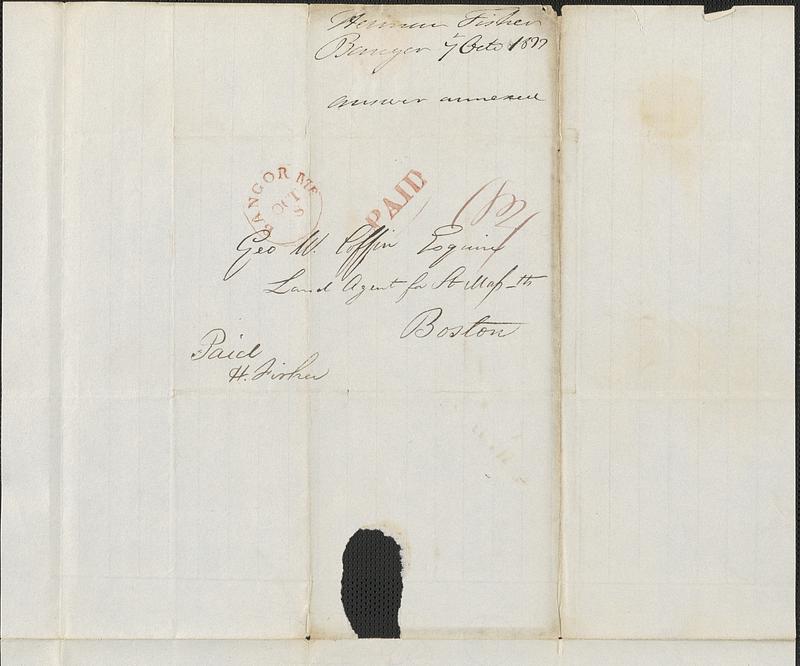 Herman Fisher
Bangor 7 Octo 1837
answer annexed
BANGOR ME
OCT
8
PAID
Geo W. Coffin Esquire
Land Agent for St Mass-tts
Boston
Paid
H. Fisher